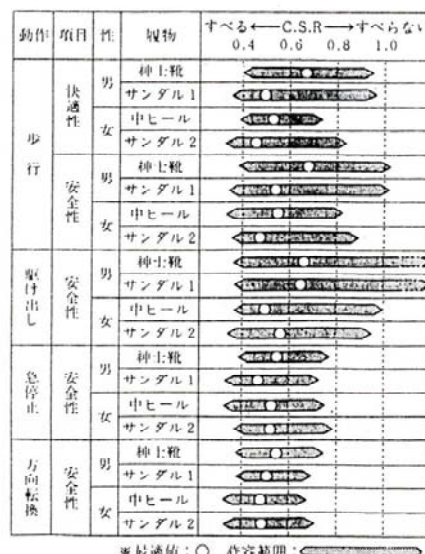 動作 項目 性 履物 すべる←C.S.R→すべらない
0.4 0.6 0.8 1.0
歩行 快適性 男 紳士靴
サンダル1
女 中ヒール
サンダル2
安全性 男 紳士靴
サンダル1
女 中ヒール
サンダル2
駆け出し 安全性 男 紳士靴
サンダル1
女 中ヒール
サンダル2
急停止 安全性 男 紳士靴
サンダル1
女 中ヒール
サンダル2
方向転換 安全性 男 紳士靴
サンダル1
女 中ヒール
サンダル2
※最適値:○ 許容範囲: